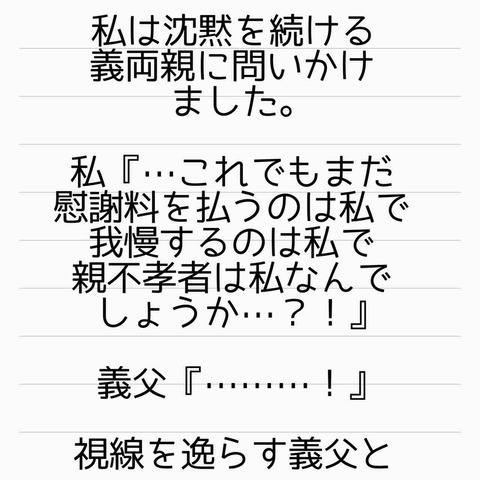 私は沈黙を続ける
義両親に問いかけ
ました。
私『…これでもまだ
慰謝料を払うのは私で
我慢するのは私で
親不孝者は私なんで
しょうか…？！』
義父『………！』
視線を逸らす義父と